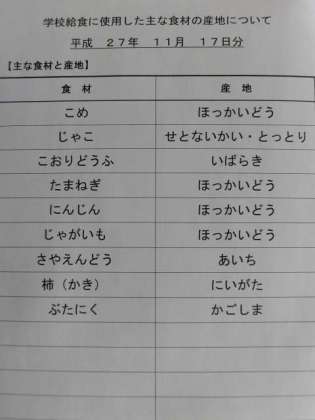 学校給食に使用した主な食材の産地について
平成　２７年　１１月　１７日分
【主な食材と産地】
食　材　産　地
こめ　ほっかいどう
じゃこ　せとないかい・とっとり
こおりどうふ　いばらき
たまねぎ　ほっかいどう
にんじん　ほっかいどう
じゃがいも　ほっかいどう
さやえんどう　あいち
柿（かき）　にいがた
ぶたにく　かごしま